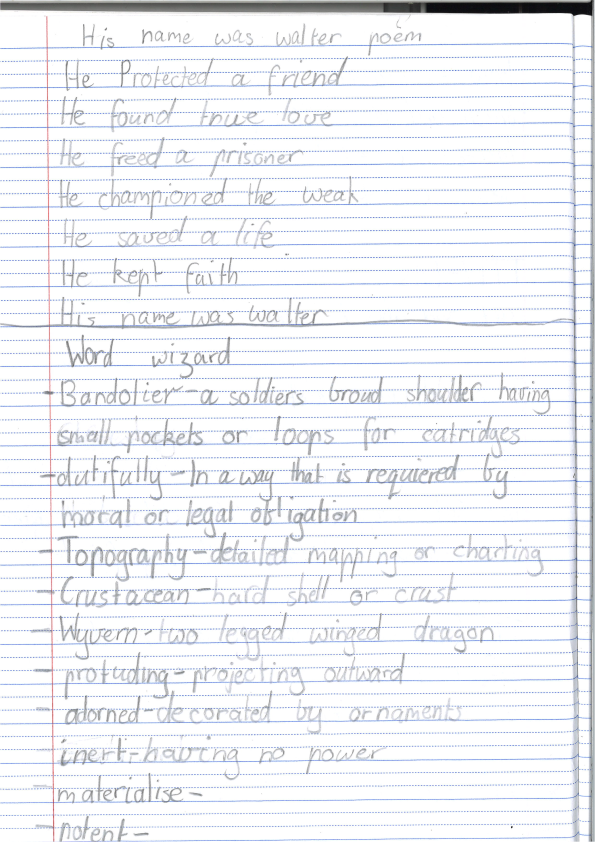 His name was walter poem
He Protected a friend
He found true love
He freed a prisoner
He championed the weak
He saved a life
He kept faith
His name was walter
Word wizard
-Bandolier-a soldiers broud shoulder having
small pockets or loops for catridges
-dutifully-In a way that is requiered by
moral or legal obligation
-Topography-detailed mapping or charting
-Crustacean-hard shell or crust
-Wyvern-two legged winged dragon
-protuding-projecting outward
-adorned-decorated by ornaments
inert-having no power
-materialise-
-potent-